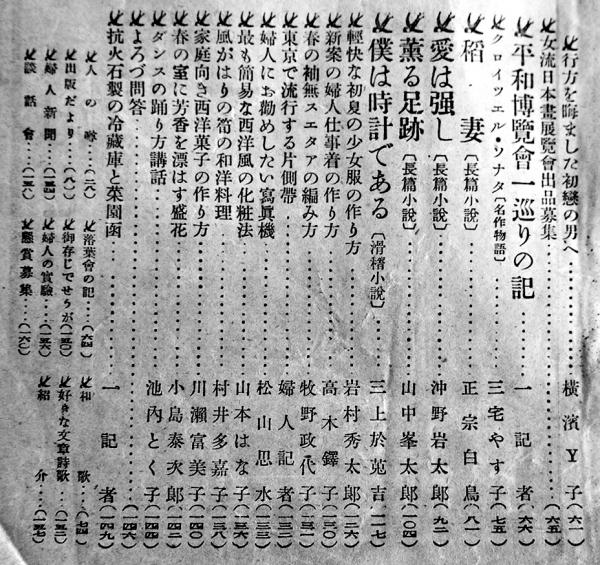 行方を晦ました初戀の男へ……橫濱Y子(六一)
女流日本畫展覽會出品募集……(六五)
平和博覽會一巡りの記……一記者(六六)
クロイツエル・ソナタ〔名作物語〕……三宅やす子(七五)
稻妻〔長篇小說〕……正宗白鳥(八一)
愛は强し〔長篇小說〕……沖野岩太郞(九二)
薫る足跡〔長篇小說〕……山中峯太郞(一〇四)
僕は時計である〔滑稽小說〕……三上於莵吉(一一七)
輕快な初夏の少女服の作り方……岩村秀太郞(一二六)
新案の婦人仕事着の作り方……高木鐸子(一三〇)
春の袖無スエタアの編み方……牧野政代子(一三一)
東京で流行する片側帶……婦人記者(一三二)
婦人にお勸めしたい寫眞機……松山思水(一三三)
最も簡易な西洋風の化粧法……山本はな子(一三六)
風がはりの筍の和洋料理……村井多嘉子(一三八)
家庭向き西洋菓子の作り方……川瀨富美子(一四〇)
春の室に芳香を漂はす盛花……小島泰次郞(一四二)
ダンスの踊り方講話……池內とく子(一四四)
よろづ問答……(一四六)
抗火石製の冷藏庫と菜園函……一記者(一四九)
人の噂……(二〇)
落葉會の記……(六四)
和歌……(七四)
出版だより……(八〇)
御存じでせうが……(一五〇)
好きな文章詩歌……(一五二)
婦人新聞……(一五四)
婦人の實驗……(一五六)
紹介……(一五七)
談話會……(一五八)
懸賞募集……(一六〇)